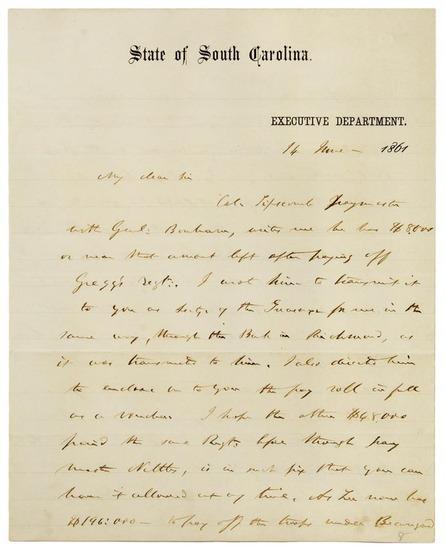 State of South Carolina.
EXECUTIVE DEPARTMENT.
14 June - 1861
My dear Sir
Col. Lipscomb Paymaster
with Genl. Bonham, writes me he has $8,000
or near that amount left after paying off
Gregg's Regt. I wrote him to transmit it
to you as Secty of the Treasury for me in the
same way, through the Bank in Richmond, as
it was transmitted to him. I also directed him
to enclose on to you the pay roll in full
as a voucher I hope the other $48,000
paid the same Regt. before through pay
master Nettles, is in such fix that you can
have it allowed at any time. As Lee now has
$196,000 - to pay off the troops under Beauregard